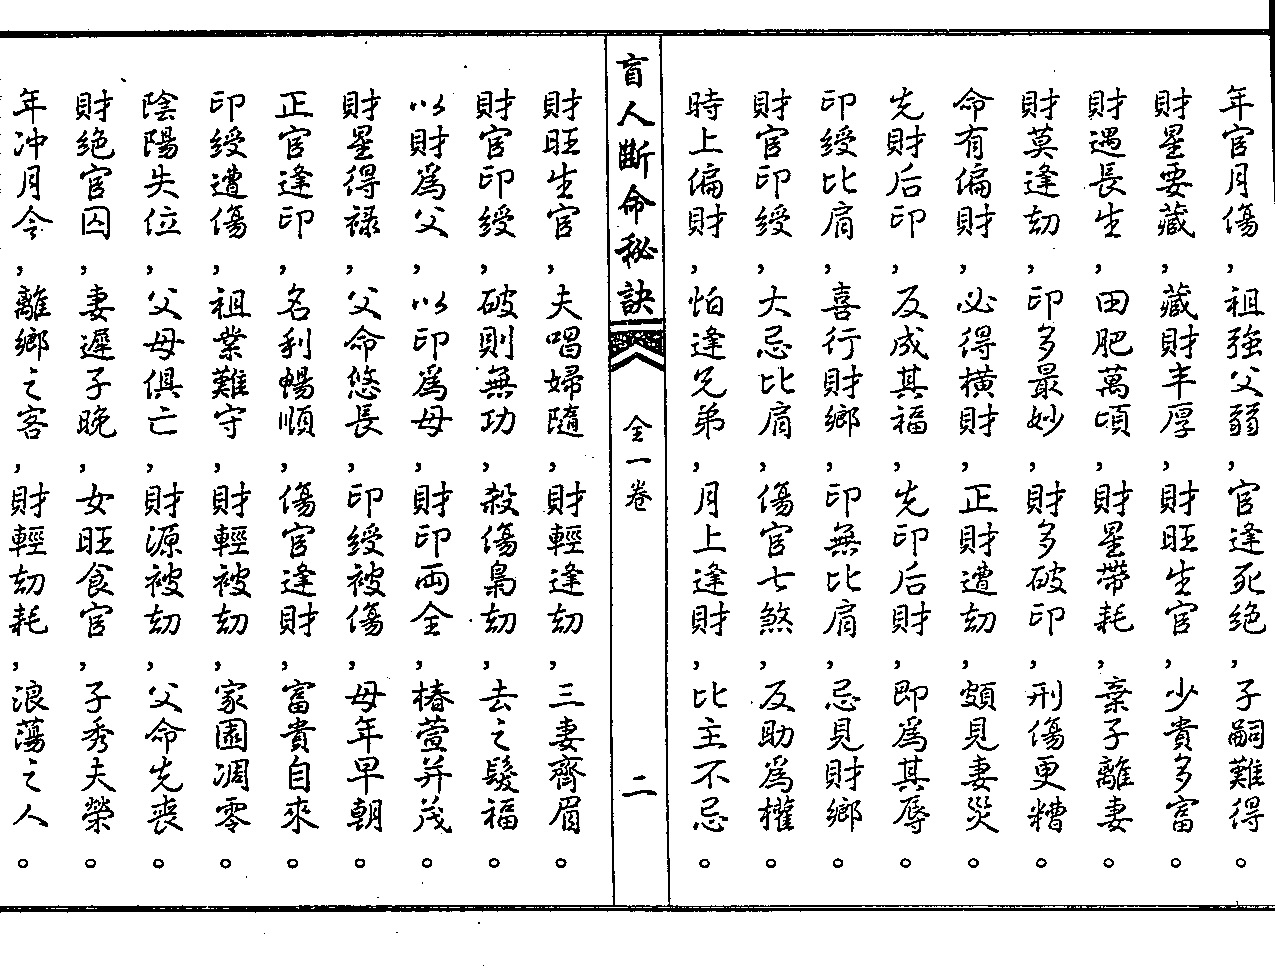 年官月傷,祖強父弱,官逢死絕,子嗣難得。
財星要藏,藏財丰厚,財旺生官,少貴多富。
財遇長生,田肥萬頃,財星帶耗,棄子離妻。
財莫逢劫,印多最妙,財多破印,刑傷更糟。
命有偏財,必得橫財,正財遭劫,頗見妻災。
先財后印,反成其福,先印后財,即為其辱。
印綬比肩,喜行財鄉,印無比肩,忌見財鄉。
財官印綬,大忌比肩,傷官七煞,反助為權。
時上偏財,怕逢兄弟,月上逢財,比主不忌。
盲人斷命秘訣
全一卷
二
財旺生官,夫唱婦隨,財輕逢劫,三妻齊眉。
財官印綬,破則無功,殺傷梟劫,去之發福。
以財為父,以印為母,財印兩全,椿萱并茂。
財星得祿,父命悠長,印綬被傷,母年早朝。
正官逢印,名利暢順,傷官逢財,富貴自來。
印綬遭傷,祖業難守,財輕被劫,家園凋零。
陰陽失位,父母俱亡,財源被劫,父命先喪。
財絕官囚,妻遲子晚,女旺食官,子秀夫榮。
年沖月令,離鄉之客,財輕劫耗,浪蕩之人。